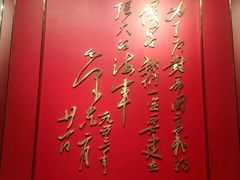 为了反對帝国主義的
侵略我们一定要建立
强大的海軍
毛泽东
一九五三年
二月
廿一日